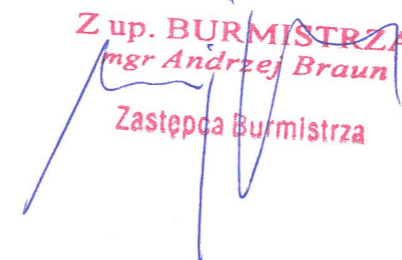 Z up. BURMISTRZA
mgr Andrzej Braun
Zastępca Burmistrza